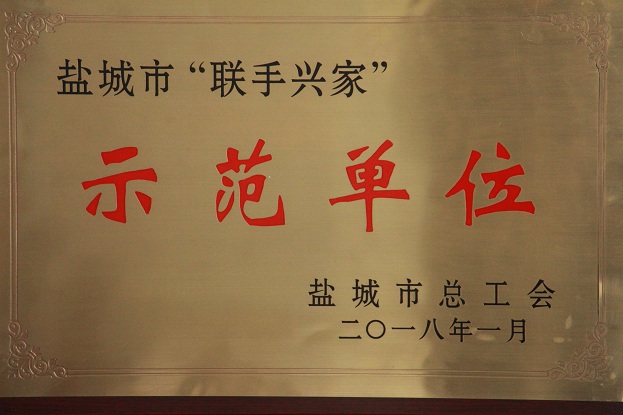 盐城市“联手兴家”
示范单位
盐城市总工会
二〇一八年一月